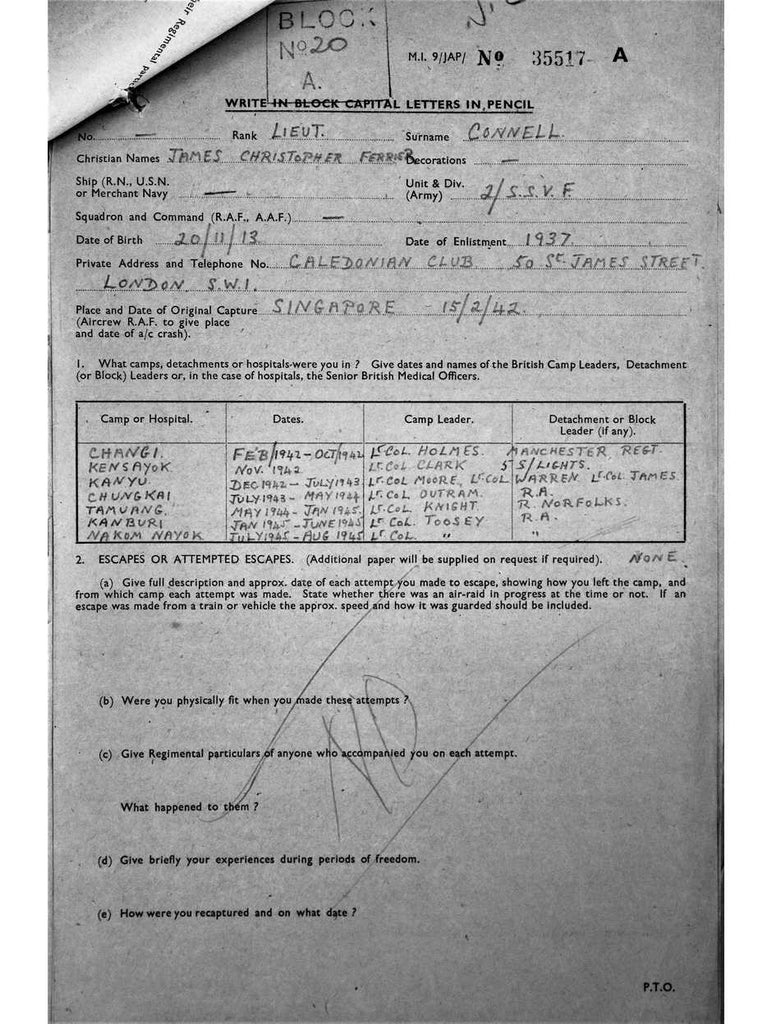 their Regimental parti
BLOCK
No 20
A.
M.I. 9/JAP/ No 35517 A
WRITE IN BLOCK CAPITAL LETTERS IN PENCIL
No. — Rank LIEUT. Surname CONNELL.
Christian Names JAMES CHRISTOPHER FERRIER Decorations —
Ship (R.N., U.S.N. or Merchant Navy — Unit & Div. (Army) 2/S.S.V.F.
Squadron and Command (R.A.F., A.A.F.) —
Date of Birth 20/11/13 Date of Enlistment 1937.
Private Address and Telephone No. CALEDONIAN CLUB 50 ST. JAMES STREET.
LONDON S.W.1.
Place and Date of Original Capture SINGAPORE - 15/2/42.
(Aircrew R.A.F. to give place
and date of a/c crash).
1. What camps, detachments or hospitals were you in ? Give dates and names of the British Camp Leaders, Detachment
(or Block) Leaders or, in the case of hospitals, the Senior British Medical Officers.
Camp or Hospital. Dates. Camp Leader. Detachment or Block Leader (if any).
CHANGI. FEB/1942 - OCT/1942 LT COL HOLMES. MANCHESTER REGT.
KENSAYOK NOV. 1942 LT. COL CLARK 5 S/LIGHTS.
KANYU. DEC 1942 - JULY 1943 LT. COL MOORE, LT. COL WARREN LT. COL JAMES
CHUNGKAI JULY 1943 - MAY 1944 LT. COL OUTRAM. R.A.
TAMUANG. MAY 1944 - JAN 1945. LT. COL KNIGHT. R. NORFOLKS.
KANBURI JAN 1945 - JUNE 1945 LT COL. TOOSEY R.A.
NAKOM NAYOK JULY 1945 - AUG 1945 LT COL. " "
2. ESCAPES OR ATTEMPTED ESCAPES. (Additional paper will be supplied on request if required). NONE.
(a) Give full description and approx. date of each attempt you made to escape, showing how you left the camp, and
from which camp each attempt was made. State whether there was an air-raid in progress at the time or not. If an
escape was made from a train or vehicle the approx. speed and how it was guarded should be included.
(b) Were you physically fit when you made these attempts ?
(c) Give Regimental particulars of anyone who accompanied you on each attempt.
What happened to them ?
(d) Give briefly your experiences during periods of freedom.
(e) How were you recaptured and on what date ?
P.T.O.